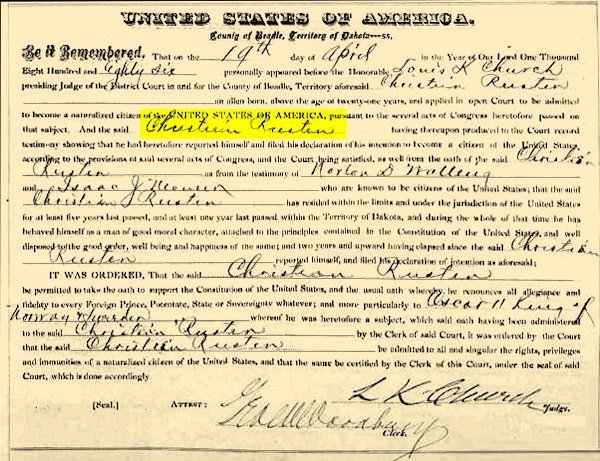 UNITED STATES OF AMERICA.
County of Beadle, Territory of Dakota—ss.
Be it Remembered, That on the 19th day of April in the Year of Our Lord One Thousand
Eight Hundred and Eighty Six personally appeared before the Honorable Louis K Church
presiding Judge of the District Court in and for the County of Beadle, Territory aforesaid Christein Rusten
an alien born, above the age of twenty-one years, and applied in open Court to be admitted
to become a naturalized citizen of the UNITED STATES OF AMERICA, pursuant to the several acts of Congress heretofore passed on
that subject. And the said Christian Rusten having thereupon produced to the Court record
testimony showing that he had heretofore reported himself and filed his declaration of his intention to become a citizen of the United States
according to the provisions of said several acts of Congress, and the Court being satisfied, as well from the oath of the said Christian
Rusten as from the testimony of D
and Isaac J who are known to be citizens of the United States; that the said
Christian Rusten has resided within the limits and under the jurisdiction of the United States
for at least five years last passed, and at least one year last passed within the Territory of Dakota, and during the whole of that time he has
behaved himself as a man of good moral character, attached to the principles contained in the Constitution of the United States, and well
disposed to the good order, well being and happiness of the same; and two years and upward having elapsed since the said Christian
Rusten reported himself, and filed his declaration of intention as aforesaid;
IT WAS ORDERED, That the said Christian Rusten
be permitted to take the oath to support the Constitution of the United States, and the usual oath whereby he renounces all allegiance and
fidelity to every Foreign Prince, Potentate, State or Sovereignty whatever; and more particularly to Oscar II King of
Norway & Sweden whereof he was heretofore a subject, which said oath having been administered
to the said Christian Rusten by the Clerk of said Court, it was ordered by the Court
that the said Christian Rusten be admitted to all and singular the rights, privileges
and immunities of a naturalized citizen of the United States, and that the same be certified by the Clerk of this Court, under the seal of said
Court, which is done accordingly.
L K Church
Judge.
[Seal.] ATTEST:
Clerk.